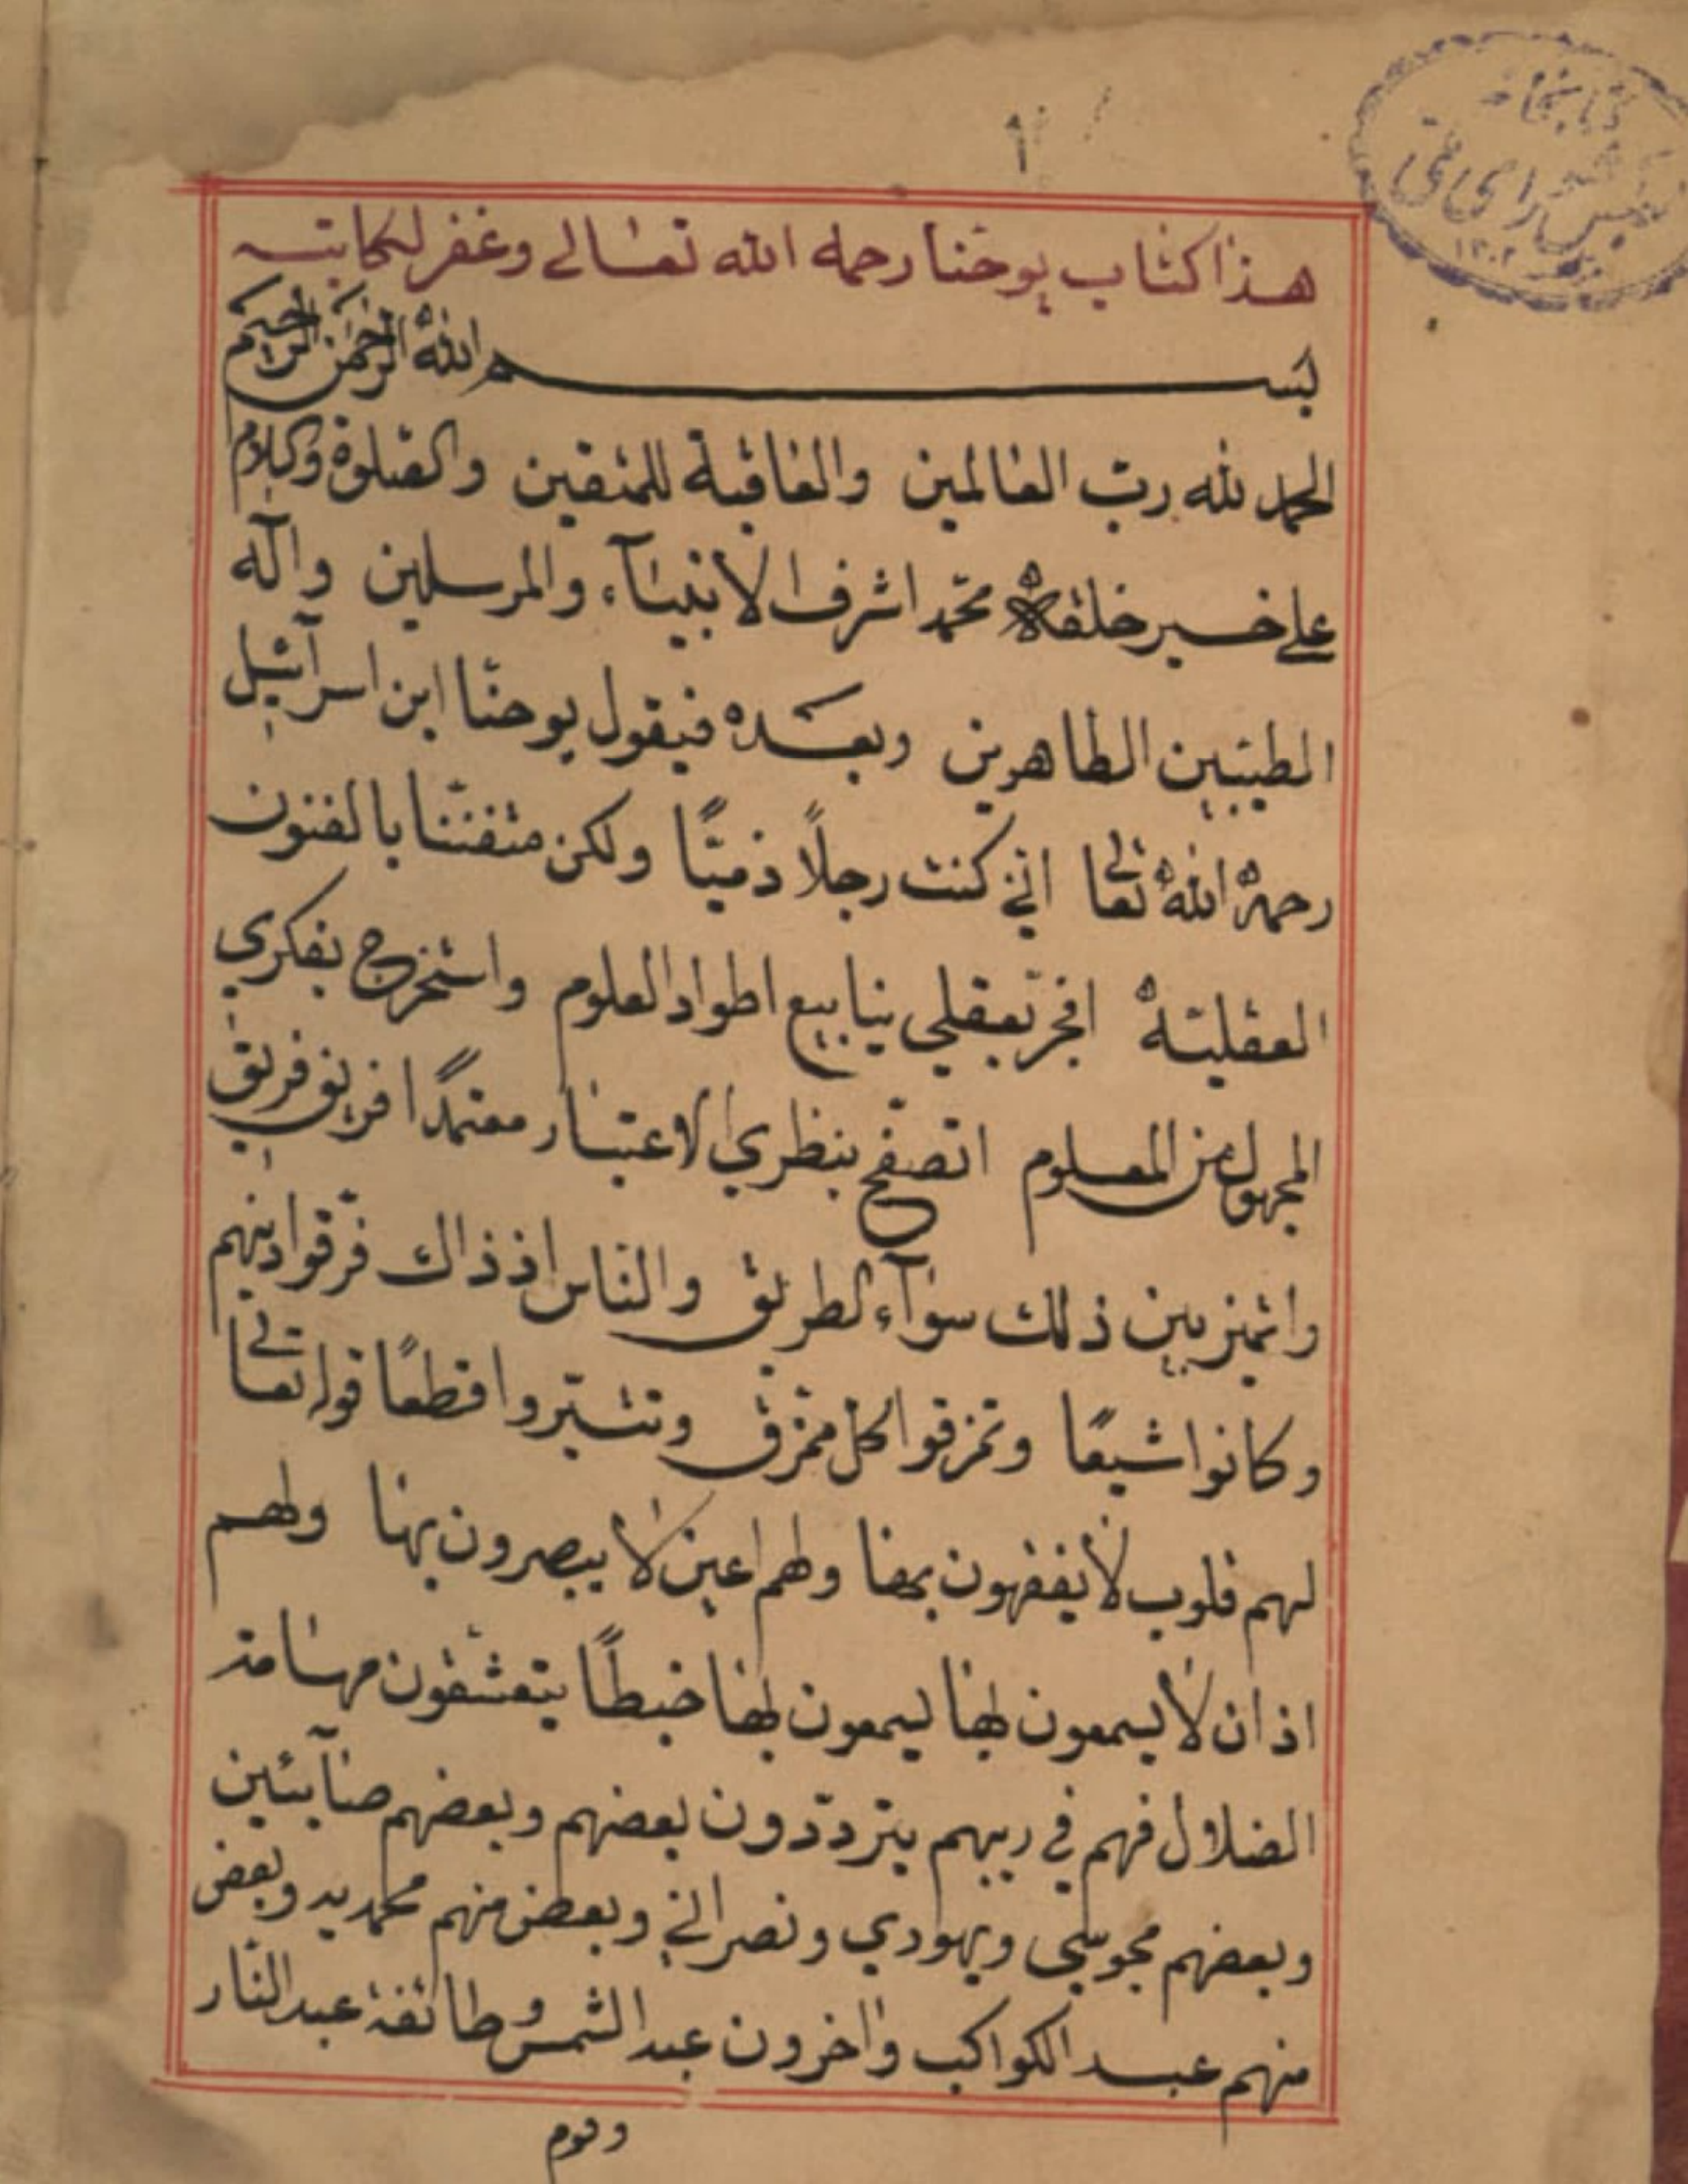 ١
كتابخانه
مجلس شورای ملی
١٣٠٢
هذا كتاب يوحنا رحمه الله تعالى وغفر لكاتبه
بسم الله الرحمن الرحيم
الحمد لله رب العالمين والعاقبة للمتقين والصلوة والسلام
على خير خلقه محمد اشرف الانبياء والمرسلين وآله
الطيبين الطاهرين وبعده فيقول يوحنا ابن اسرآئيل
رحمة الله تعالى اني كنت رجلاً ذميّاً ولكن متفنّنا بالفنون
العقلية افجّر بعقلي ينابيع اطواد العلوم واستخرج بفكري
المجهول من المعلوم اتصفّح بنظري الاعتبار معتمدًا افريق فريق
واتميز بين ذلك سوآء الطريق والناس اذ ذاك فرّقوا دينهم
وكانوا شيعًا وتمزقوا كل ممزق وتشتّروا قطعًا قوله تعالى
لهم قلوب لا يفقهون بها ولهم اعين لا يبصرون بها ولهم
اذان لا يسمعون بها يسمعون بها خبطًا يتعشقون مهامه
الضلال فهم في ريبهم يتردّدون بعضهم وبعضهم صابئين
وبعضهم مجوسي ويهودي ونصراني وبعض منهم محمديه وبعض
منهم عبد الكواكب واخرون عبد الشمس وطائفة عبد النار
وقوم